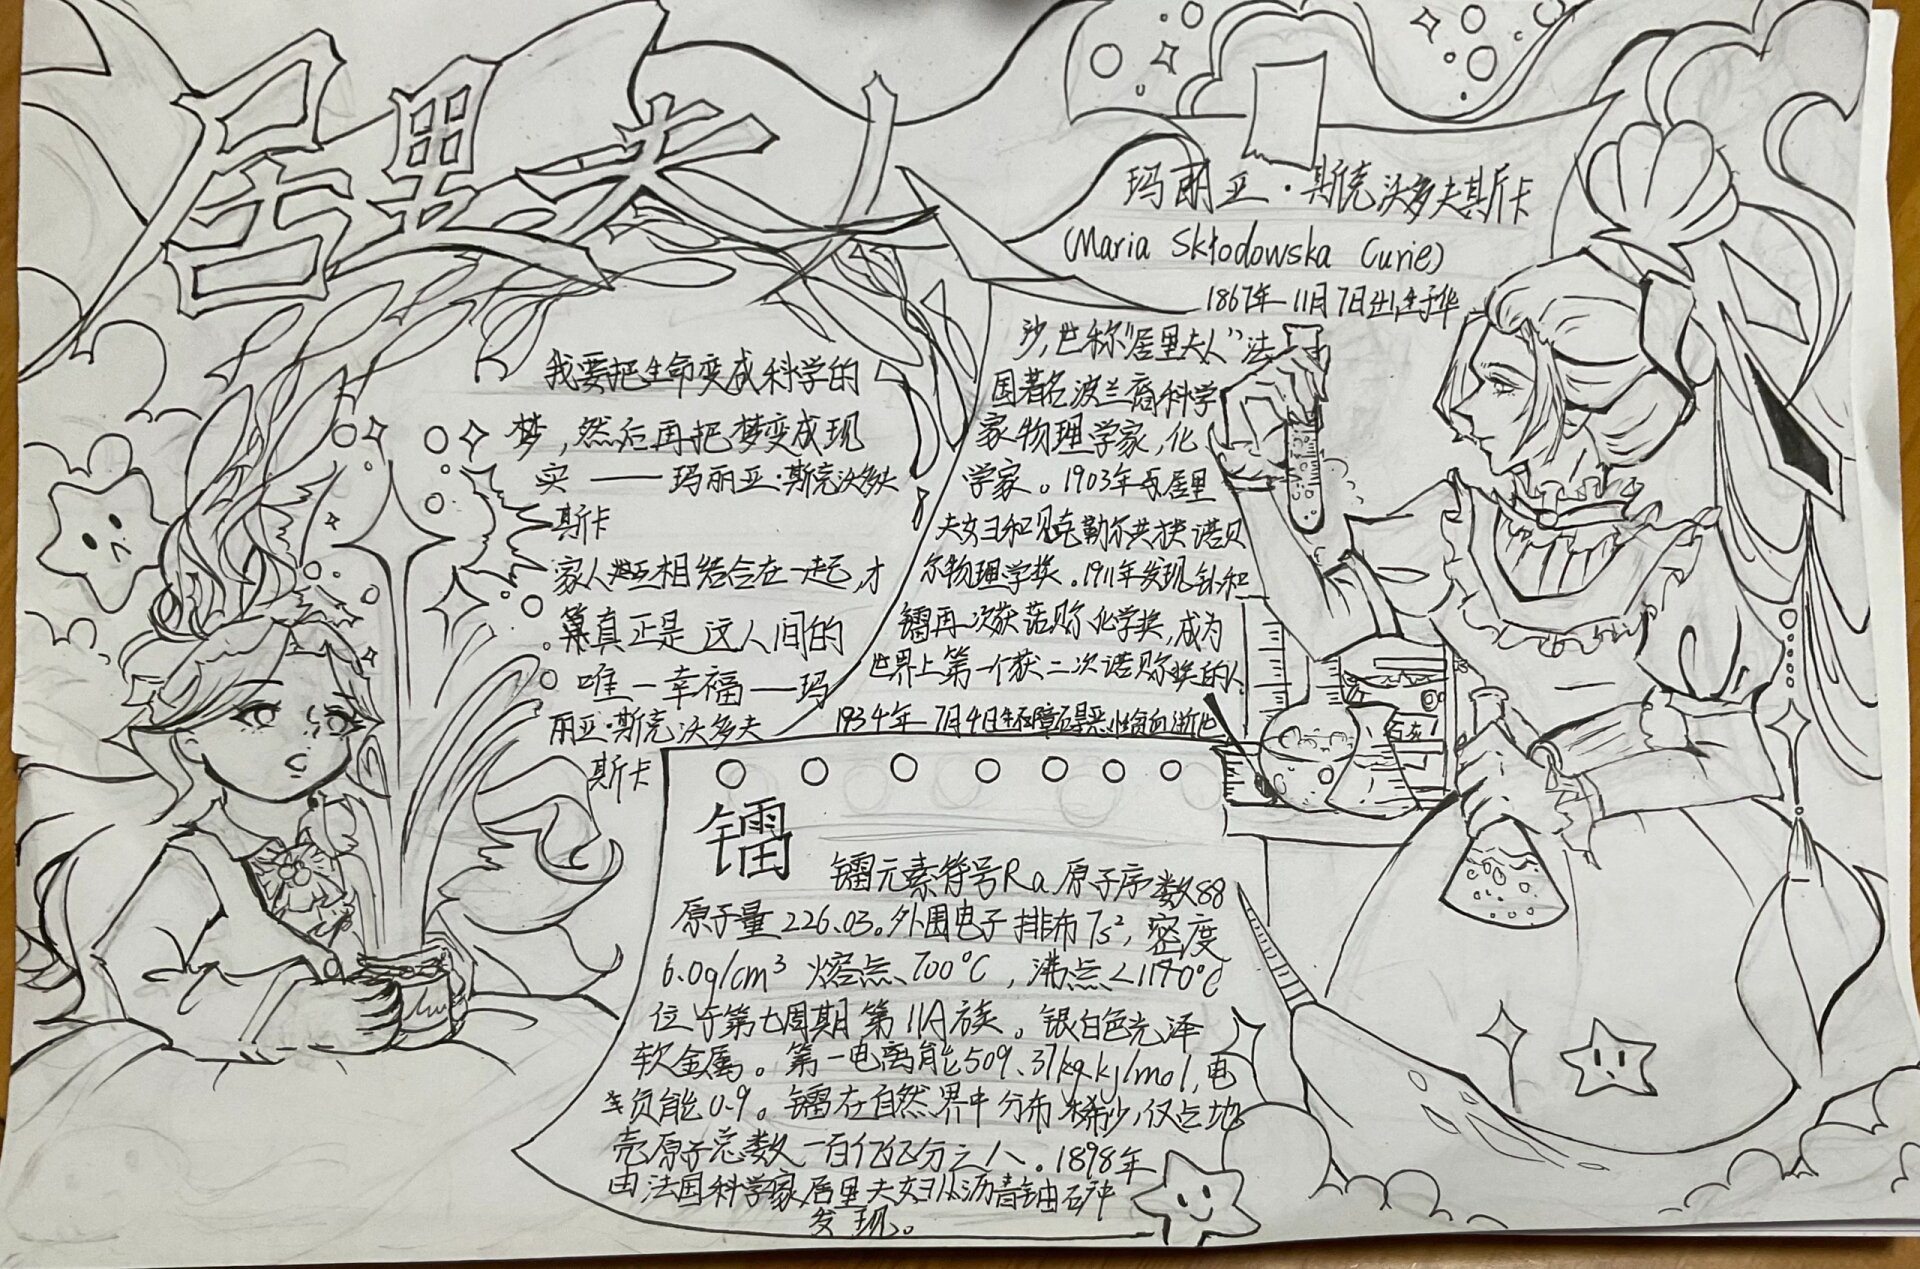 居里夫人
我要把生命变成科学的
梦,然后再把梦变成现
实——玛丽亚·斯克沃多夫
斯卡
家人
互相结合在一起,才
算真正是这人间的
唯一幸福—玛
丽亚·斯克沃多夫
斯卡
玛丽亚·斯克沃多夫斯卡
(Maria Skłodowska Curie)
1867年11月7日出生于华
沙,世称“居里夫人”法
国著名波兰裔科学
家物理学家,化
学家。1903年与居里
夫妇和贝克勒尔共获诺贝
尔物理学奖.1911年发现钋和
镭再次获诺贝尔化学奖,成为
世界上第一个获二次诺贝尔奖的人
1934年7月4日 恶性贫血逝世
镭
镭元素符号Ra原子序数88
原子量226.03。外围电子排布7s²,密度
6.0g/cm³熔点、700°C,沸点<1140°C
位于第七周期第IIA族。银白色光泽
软金属。第一电离能509、37kg.kJ/mol,电
负能0.9。镭在自然界中分布稀少,仅占地
壳原子总数一百亿亿分之八.1898年
由法国科学家居里夫妇从沥青铀矿中
发现。